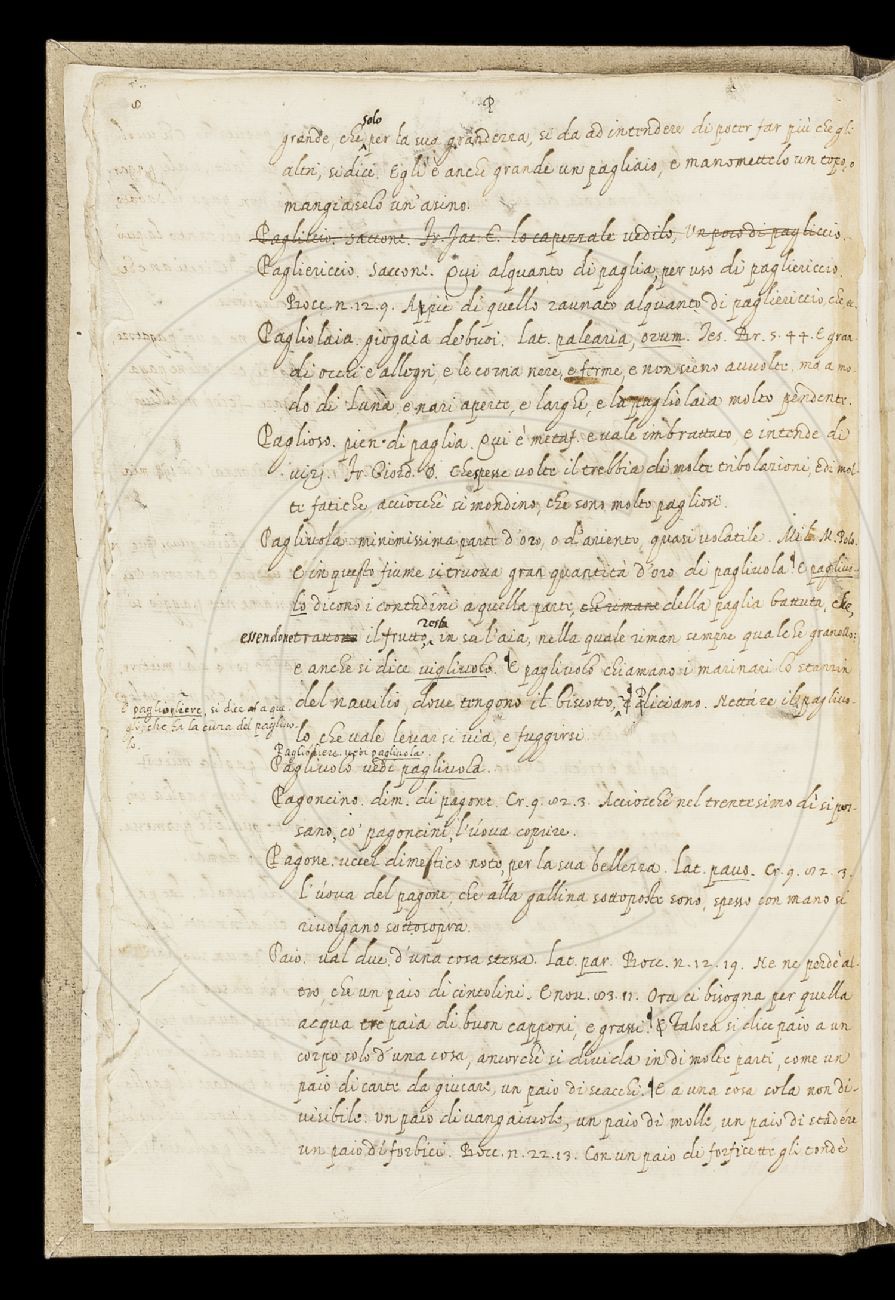 8
P
solo
grande, che per la sua grandezza, si da ad intendere di poter far più che gli
altri, si dice, Egli è anche grande un pagliaio, e manomettelo un topo, o
mangiaselo un'asino.
Pagliccio. Saccone. Fr. Jac. C. lo capezzale vedilo, Un poco di pagliccio.
Pagliericcio. Saccone. Qui alquanto di paglia, per uso di pagliericcio.
Bocc. n. 12. 9. Appiè di quello raunato alquanto di pagliericcio, che
Pagliolaia. giogaia de buoi. Lat. palearia, orum. Tes. Br. 5. 44. E gran-
di occhi e allegri, e le corna nere, e ferme, e non sieno avvolte, ma a mo-
do di Luna, e nari aperte, e larghe, e la pagliolaia molto pendente.
Paglioso. pien di paglia. Qui è metaf. e vale imbrattato, e intende di
vizj. Fr. Giord. D. Che spesse volte il trebbia di molte tribolazioni, e di mol-
te fatiche, acciocchè si mondino, che sono molto pagliosi.
Pagliuola. minimissima parte d'oro, o d'ariento, quasi volatile. Mil. M. Polo.
E in questo fiume si truova gran quantità d'oro di pagliuola. E pagliuo-
lo dicono i contadini a quella parte, che rimane della paglia battuta, che,
essendone tratto il frutto, resta in su l'aia, nella quale riman sempre qualche granello:
e anche si dice vigliuolo. E pagliuolo chiamano i marinari lo
del navilio, dove tengono il biscotto, diciamo. Nettare il pagliuo-
E pagliogliere, si dice a
che ha la cura del pagliuo-
lo.
lo, che vale levarsi via, e fuggirsi.
Pagliuoliere. vedi pagliuola.
Pagliuolo vedi pagliuola.
Pagoncino. dim. di pagone. Cr. 9. 82. 3. Acciocchè nel trentesimo dì si pos-
sano, co' pagoncini, l'uova coprire.
Pagone. uccel dimestico noto, per la sua bellezza. Lat. pavo. Cr. 9. 82. 3.
L'uova del pagone, che alla gallina sottoposte sono, spesso con mano si
rivolgano sottosopra.
Paio. val due d'una cosa stessa. Lat. par. Bocc. n. 12. 19. Ne ne perdè al-
tro, che un paio di cintolini. E nov. 83. 11. Ora ci bisogna per quella
acqua tre paia di buon capponi, e grassi. Talora si dice paio a un
corpo solo d'una cosa, ancorchè si divida in di molte parti, come un
paio di carte da giucare, un paio di scacchi. E a una cosa sola non di-
visibile. un paio di vangaiuole, un paio di molle, un paio di stadere
un paio di forbici. Bocc. n. 22. 13. Con un paio di forficette gli tondè